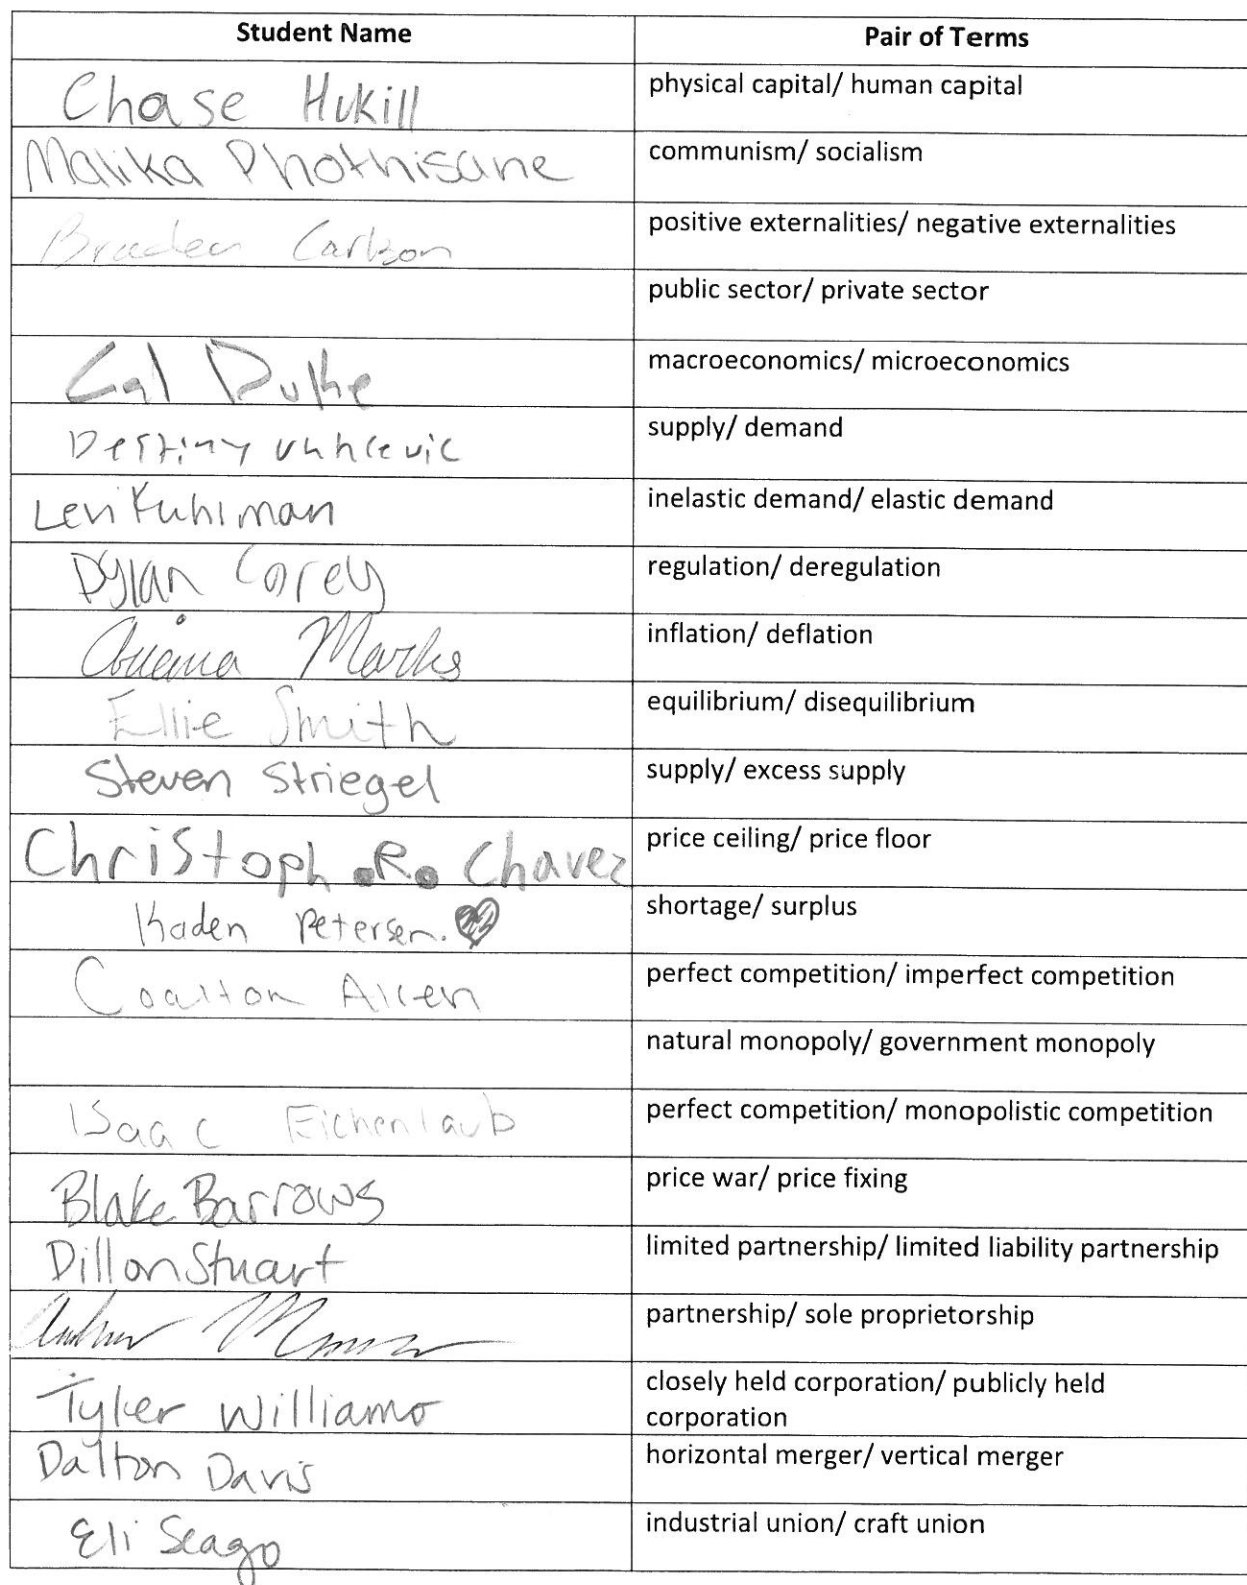 Student Name Pair of Terms
Chase Hukill physical capital/ human capital
Malika Phothisane communism/ socialism
Braden Carlson positive externalities/ negative externalities
public sector/ private sector
Cal Duke macroeconomics/ microeconomics
Destiny supply/ demand
Levi Kuhlman inelastic demand/ elastic demand
Dylan Corey regulation/ deregulation
Marks inflation/ deflation
Ellie Smith equilibrium/ disequilibrium
Steven Striegel supply/ excess supply
Christoph .R. Chavez price ceiling/ price floor
Kaden Petersen. shortage/ surplus
Coalton Allen perfect competition/ imperfect competition
natural monopoly/ government monopoly
Isaac Eichenlaub perfect competition/ monopolistic competition
Blake Barrows price war/ price fixing
Dillon Stuart limited partnership/ limited liability partnership
partnership/ sole proprietorship
Tyler Williams closely held corporation/ publicly held
corporation
Dalton Davis horizontal merger/ vertical merger
Eli Seago industrial union/ craft union